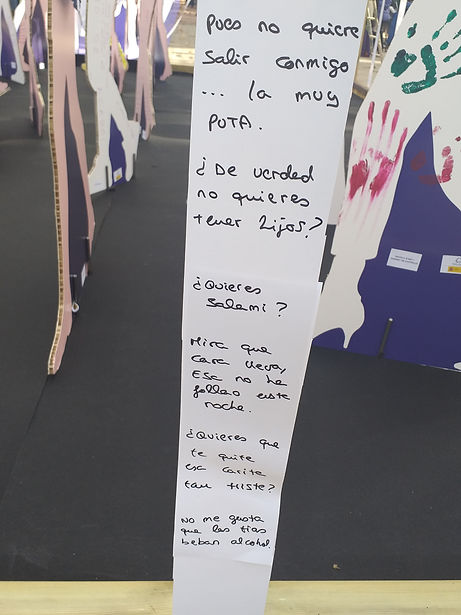 pues no quiere
salir conmigo
... la muy
PUTA.
¿De verdad
no quieres
tener hijos?
¿Quieres
salami?
Mira que
cara lleva,
Esa no ha
follao este
noche.
¿Quieres que
te quite
esa carita
tan triste?
No me gusta
que las tías
beban alcohol.